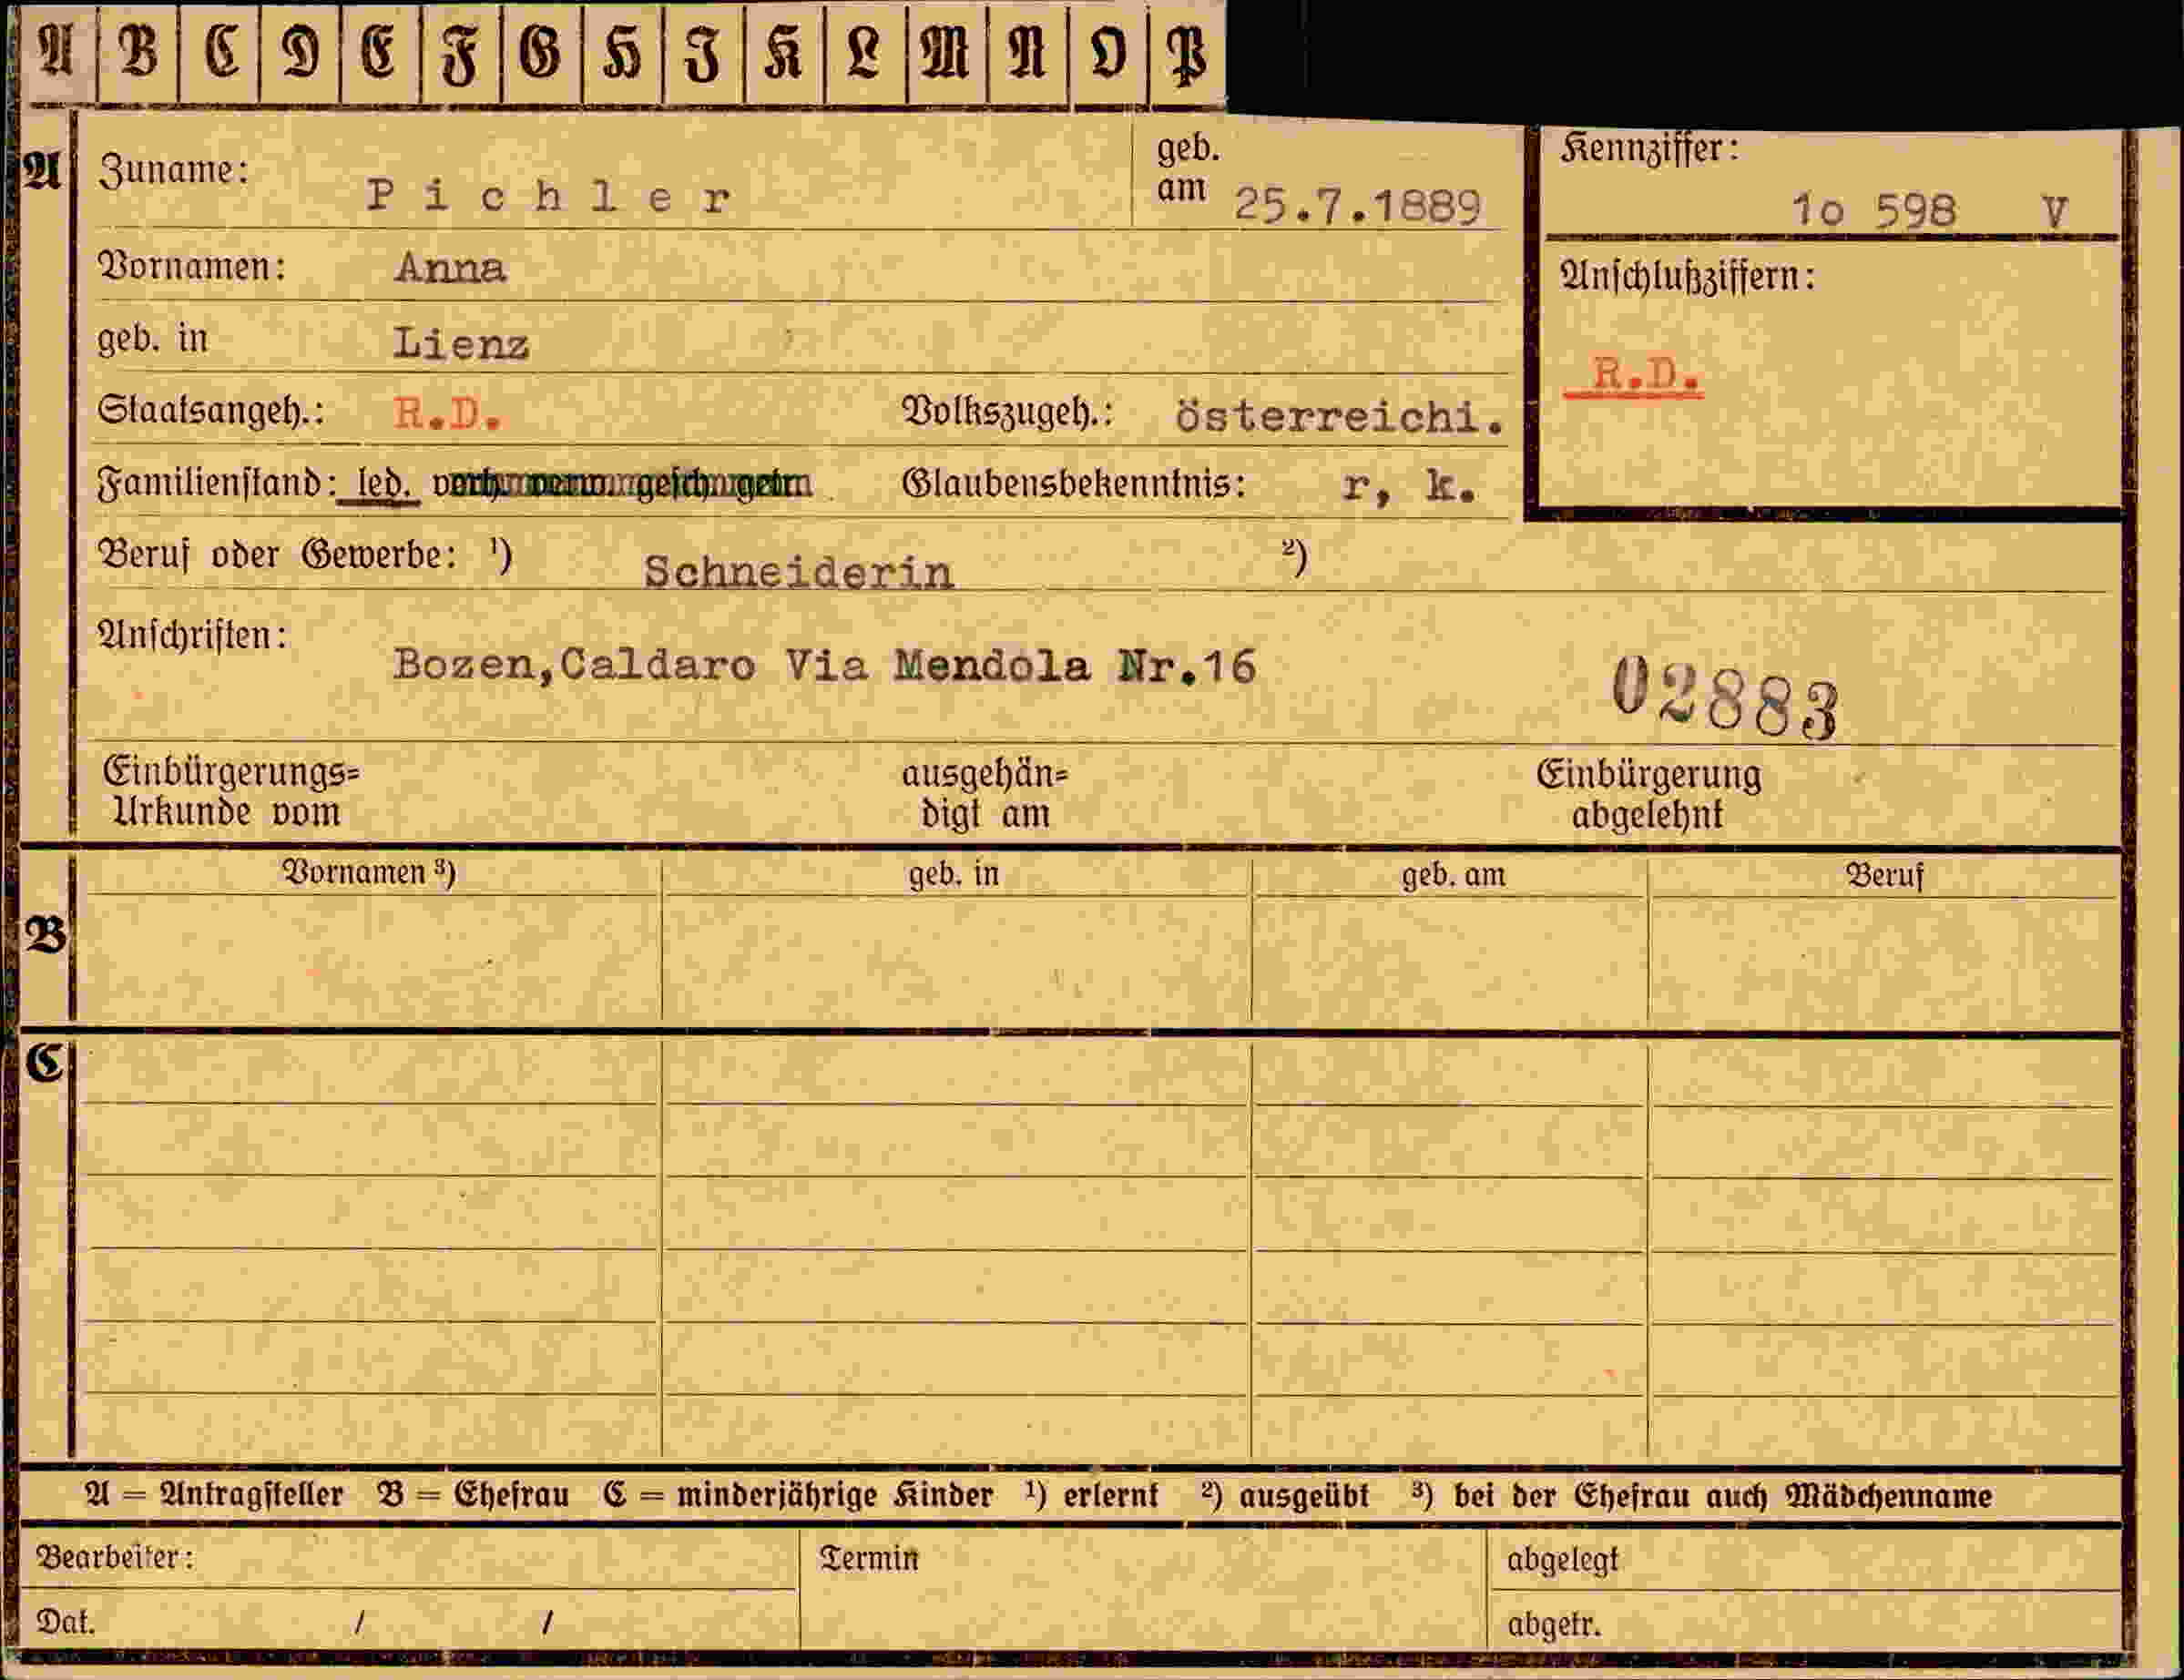 A B C D E F G H I K L M N O P
A Zuname: Pichler geb. am 25.7.1889 Kennziffer: 1o 598 V
Vornamen: Anna Anschlußziffern:
geb. in Lienz
R.D.
Staatsangeh.: R.D. Volkszugeh.: österreichi.
Familienstand: led. Glaubensbekenntnis: r, k.
Beruf oder Gewerbe: ¹) Schneiderin ²)
Anschriften: Bozen,Caldaro Via Mendola Nr.16
02883
Einbürgerungs= ausgehän= Einbürgerung
Urkunde vom digt am abgelehnt
Vornamen ³) geb. in geb. am Beruf
B
C
A = Antragsteller B = Ehefrau C = minderjährige Kinder ¹) erlernt ²) ausgeübt ³) bei der Ehefrau auch Mädchenname
Bearbeiter: Termin abgelegt
Dat. / / abgetr.